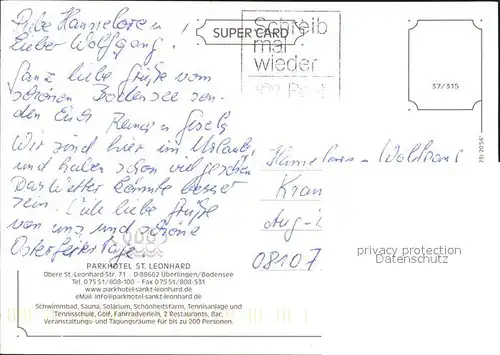 Liebe Hannelore u
Lieber Wolfgang!
Ganz liebe Grüße vom
schönen Bodensee sen-
den Euch Reiner u Gisela
Wir sind hier im Urlaub
und haben schon viel gesehen
Das Wetter könnte besser
sein. Euch liebe Grüße
von uns und schöne
Osterfeiertage.
SUPER CARD
Schreib
mal
wieder
Post
37/315
Hannelore u Wolfgang
Kran
Aug-
08107
privacy protection
Datenschutz
PARKHOTEL ST. LEONHARD
Obere St.-Leonhard-Str. 71 · D-88662 Überlingen/Bodensee
Tel. 0 75 51/808-100 · Fax 0 75 51/808-531
www.parkhotel-sankt-leonhard.de
eMail: info@parkhotel-sankt-leonhard.de
Schwimmbad, Sauna, Solarium, Schönheitsfarm, Tennisanlage und
Tennisschule, Golf, Fahrradverleih, 2 Restaurants, Bar,
Veranstaltungs- und Tagungsräume für bis zu 200 Personen.